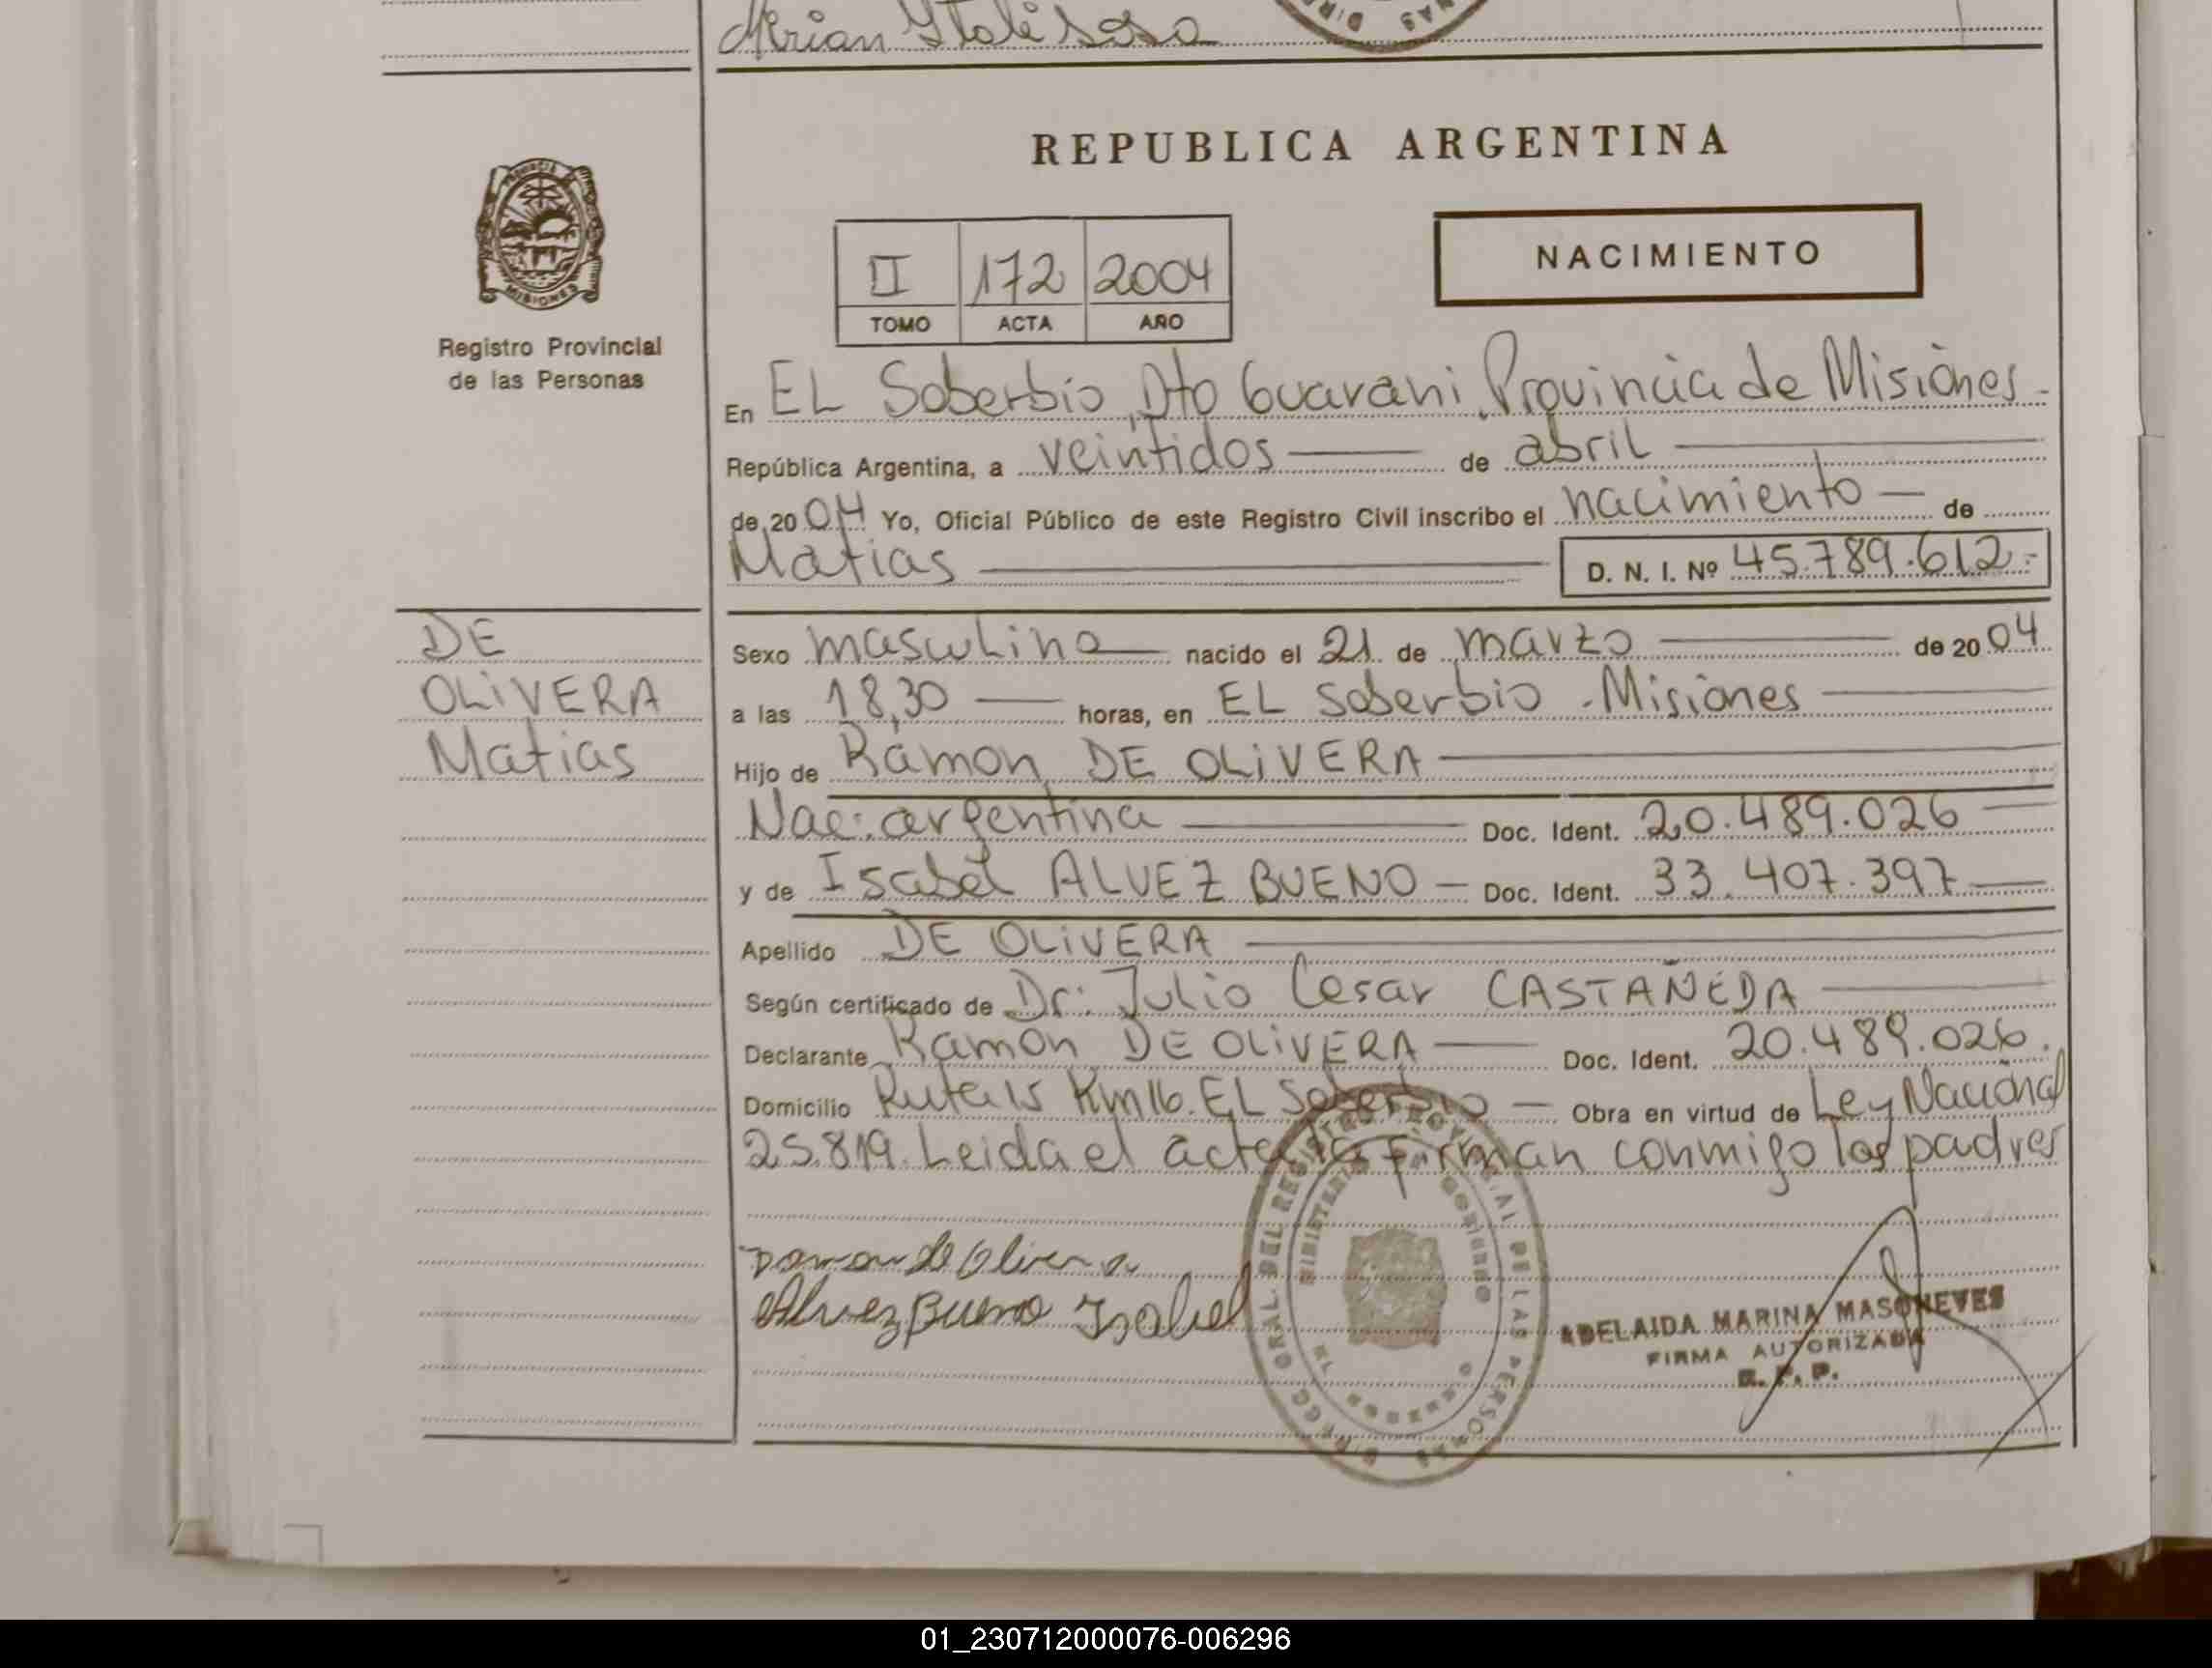 Mirian Itati Sosa
REPUBLICA ARGENTINA
PROVINCIA
MISIONES
Registro Provincial
de las Personas
II 172 2004
TOMO ACTA AÑO
NACIMIENTO
En EL Soberbio, Dto Guarani, Provincia de Misiones.
República Argentina, a veintidos de abril
de 2004 Yo, Oficial Público de este Registro Civil inscribo el nacimiento de
Matias D. N. I. Nº 45.789.612.-
DE
OLIVERA
Matias
Sexo masculino nacido el 21 de marzo de 2004
a las 18,30 horas, en EL Soberbio - Misiones
Hijo de Ramon DE OLIVERA
Nac: argentina Doc. Ident. 20.489.026
y de Isabel ALVEZ BUENO Doc. Ident. 33.407.397
Apellido DE OLIVERA
Según certificado de Dr: Julio Cesar CASTAÑEDA
Declarante Ramon DE OLIVERA Doc. Ident. 20.489.026.
Domicilio Ruta 15 Km 16. EL Soberbio Obra en virtud de Ley Nacional
25.819. Leida el acta la firman conmigo los padres
Ramon de Olivera
Alvez Bueno Isabel
DIRECC. GRAL. DEL REGISTRO PROVINCIAL DE LAS PERSONAS
MINISTERIO DE GOBIERNO
ADELAIDA MARINA MASONEVES
FIRMA AUTORIZADA
R. P. P.
01_230712000076-006296